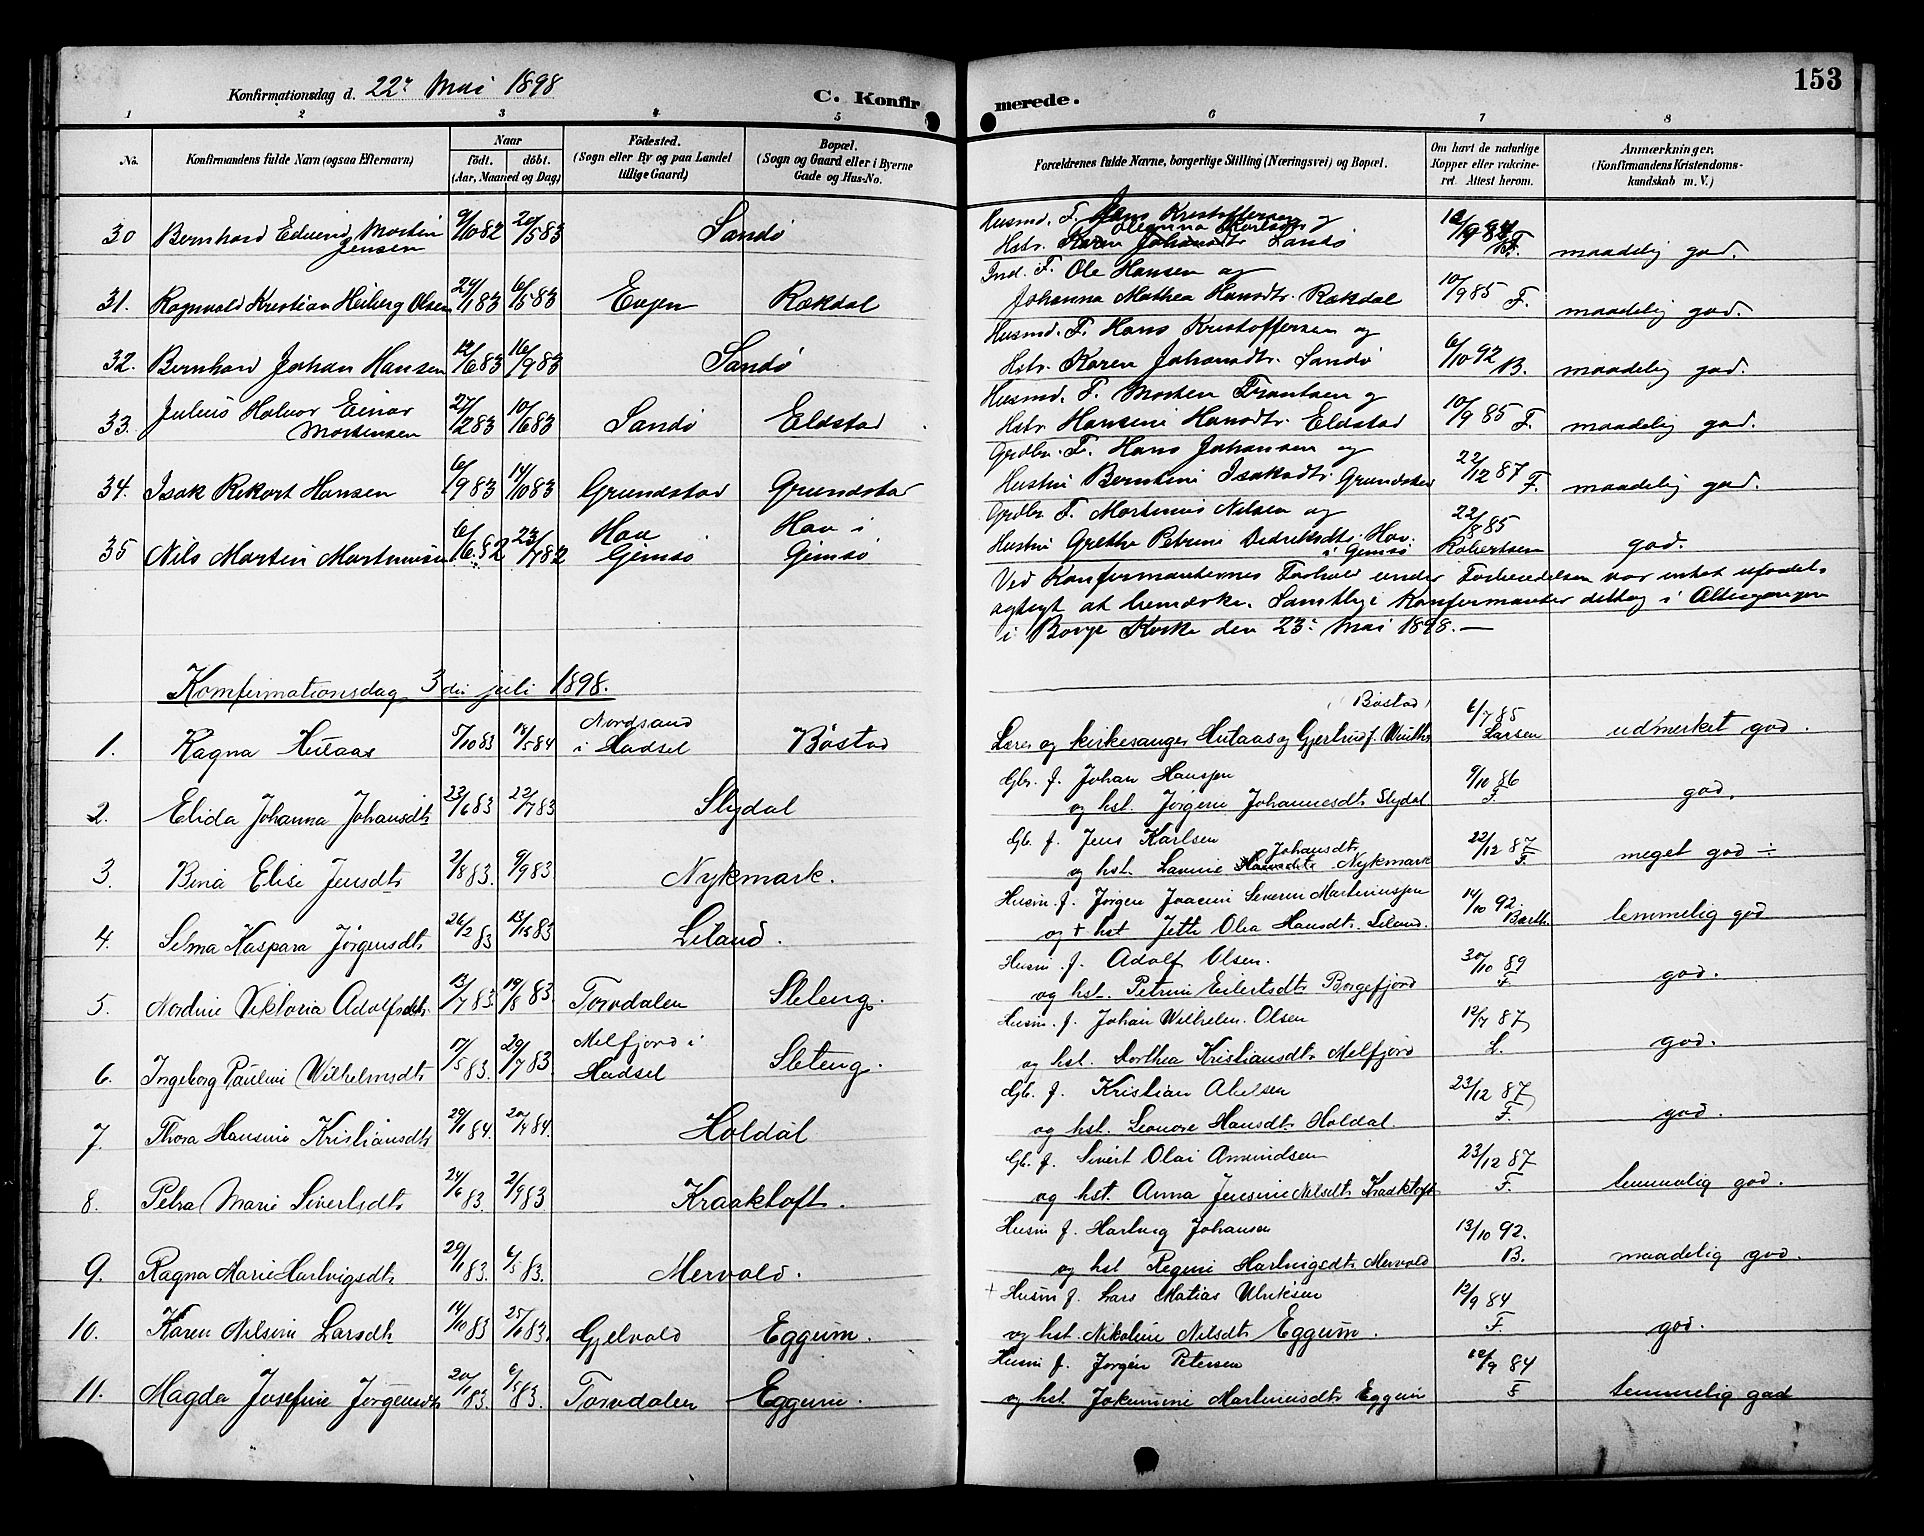 Konfirmationsdag d. 22de Mai 1898
C. Konfirmerede.
153
1 2 3 4 5 6 7 8
No. Konfirmandens fulde Navn (ogsaa Efternavn) Naar født. døbt. (Aar, Maaned og Dag) Fødested. (Sogn eller By og paa Landet tillige Gaard) Bopæl. (Sogn og Gaard eller i Byerne Gade og Hus-No. Forældrenes fulde Navne, borgerlige Stilling (Næringsvei) og Bopæl. Om havt de naturlige Kopper eller vakcineret. Attest herom. Anmærkninger, (Konfirmandens Kristendomskundskab m. V.)
30 Bernhard Edvind Martin Jensen 9/10 82 20/5 83 Sandø Husmd. F. Jens Kristoffersen og Hstr. Karen Johansdtr. Sandø maadelig god.
31. Ragnvald Kristian Heiberg Olsen 29/1 83 6/5 83 Evjen Rækdal Ind. F. Ole Hansen og Johanna Mathea Hansdtr. Rækdal 10/9 85 F. maadelig god.
32. Bernhard Johan Hansen 12/6 83 16/9 83 Sandø Husmd. F. Hans Kristoffersen og Hstr. Karen Johansdtr. Sandø 6/10 92 B. maadelig god.
33. Julius Halvor Einar Mortensen 27/2 83 10/6 83 Sandø Eldstad Husmd. F. Morten Frantsen og Hstr. Hansine Hansdtr. Eldstad 10/9 85 F. maadelig god.
34. Isak Rikart Hansen 6/9 83 14/10 83 Grundstad Grundstad Grdbr. F. Hans Johansen og Hustru Berntine Isaksdtr. Grundstad 22/12 87 F. maadelig god.
35 Nils Martin Martinussen 6/6 82 23/7 82 Hov Gimsø Hov i Gimsø Grdbr. F. Martinus Nilsen og Hustru Grethe Petrine Dedriksdtr. Hov i Gimsø 22/8 85 Robertsen god.
Ved Konfirmanternes Forhold under Forberedelsen var intet ufordelagtigt at bemærke. Samtlige Konfirmanter deltog i Altergangen
i Borge Kirke den 23de Mai 1898. —
Komfirmationsdag 3die juli 1898.
1. Ragna Hutaas 5/10 83 12/5 84 Nordsand i Hadsel Bøstad Lærer og kirkesanger Hutaas og Gjertrud f. Winther (Bøstad) 6/7 85 Larsen udmerket god.
2. Elida Johanna Johansdtr 23/6 83 22/7 83 Slydal Gbr. f. Johan Hanssen og hst. Jørgine Johannesdtr Slydal 9/10 86 F. god.
3. Bina Elise Jensdtr 2/8 83. 9/9 83 Nykmark. Gb. f. Jens Karlsen og hst. Lavine Johansdtr Nykmark 22/12 87 F. meget god ÷
4. Selma Kaspara Jørgensdtr 26/2 83 13/5 83 Leland. Husm. f. Jørgen Joacim Severin Martinussen og + hst Jette Olea Hansdtr. Leland. 14/10 92. Barth temmelig god
5. Nordine Viktoria Adolfsdtr. 13/7 83. 19/8 83. Torvdalen Sleteng. Husm. f. Adolf Olsen. og hst. Petrine Eilertsdtr Borgefjord 30/10 89 F. god.
6. Ingeborg Pauline Wilhelmsdtr 17/5 83. 29/7 83 Melfjord i Hadsel Sleteng. Husm. f. Johan Wilhelm Olsen og hst. Dorthea Kristiansdtr Melfjord 12/7 87 L. god.
7. Thora Hansine Kristiansdtr 29/1 84. 20/4 84. Holdal Gb. f. Kristian Abelsen og hst. Leonore Hansdtr Holdal. 23/12 87 F. god.
8. Petra Marie Sivertsdtr 24/6 83. 2/9 83 Kraaktoft. Gb. f. Sivert Olai Amundsen og hst. Anna Jensine Nilsdtr Kraaktoft 23/12 87 F. temmelig god.
9. Ragna Marie Hartvigsdtr 29/1 83. 6/5 83. Mervold. Husm f. Hartvig Johansen og hst Regine Hartvigsdtr Mervold 13/10 92. B. maadelig god.
10. Karen Nilsine Larsdtr 14/10 83 25/11 83. Gjelvold Eggum. + Husm f. Lars Matias Ulriksen og hst. Nikoline Nilsdtr Eggum. 12/9 84 F. god.
11. Magda Josefine Jørgensdtr 20/1 83. 6/5 83. Torvdalen Eggum. Husm f. Jørgen Petersen og hst. Jakumine Martinusdtr Eggum 12/9 84 F temmelig god